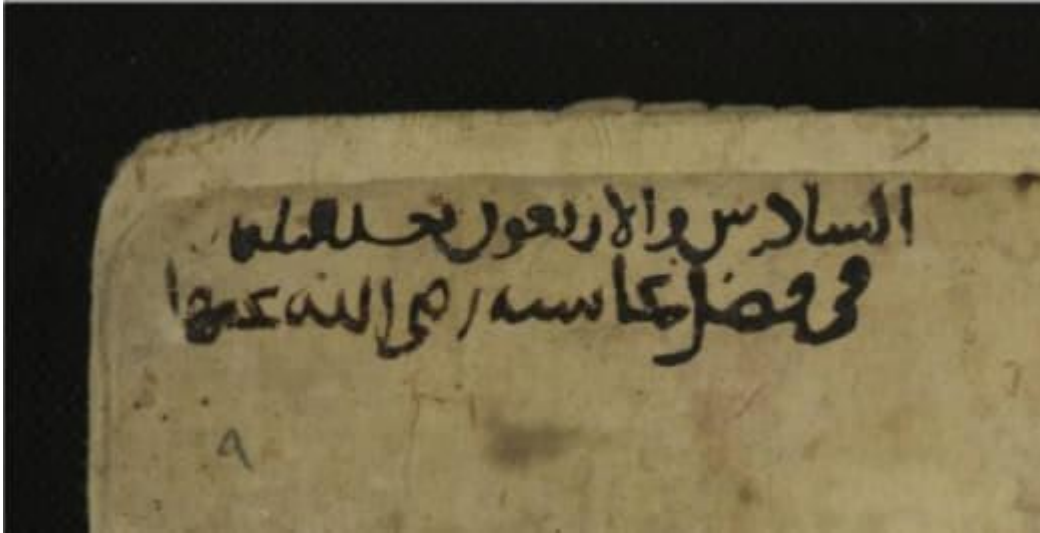 السادس والاربعون بعد
في فضل عائشة رضي الله عنها